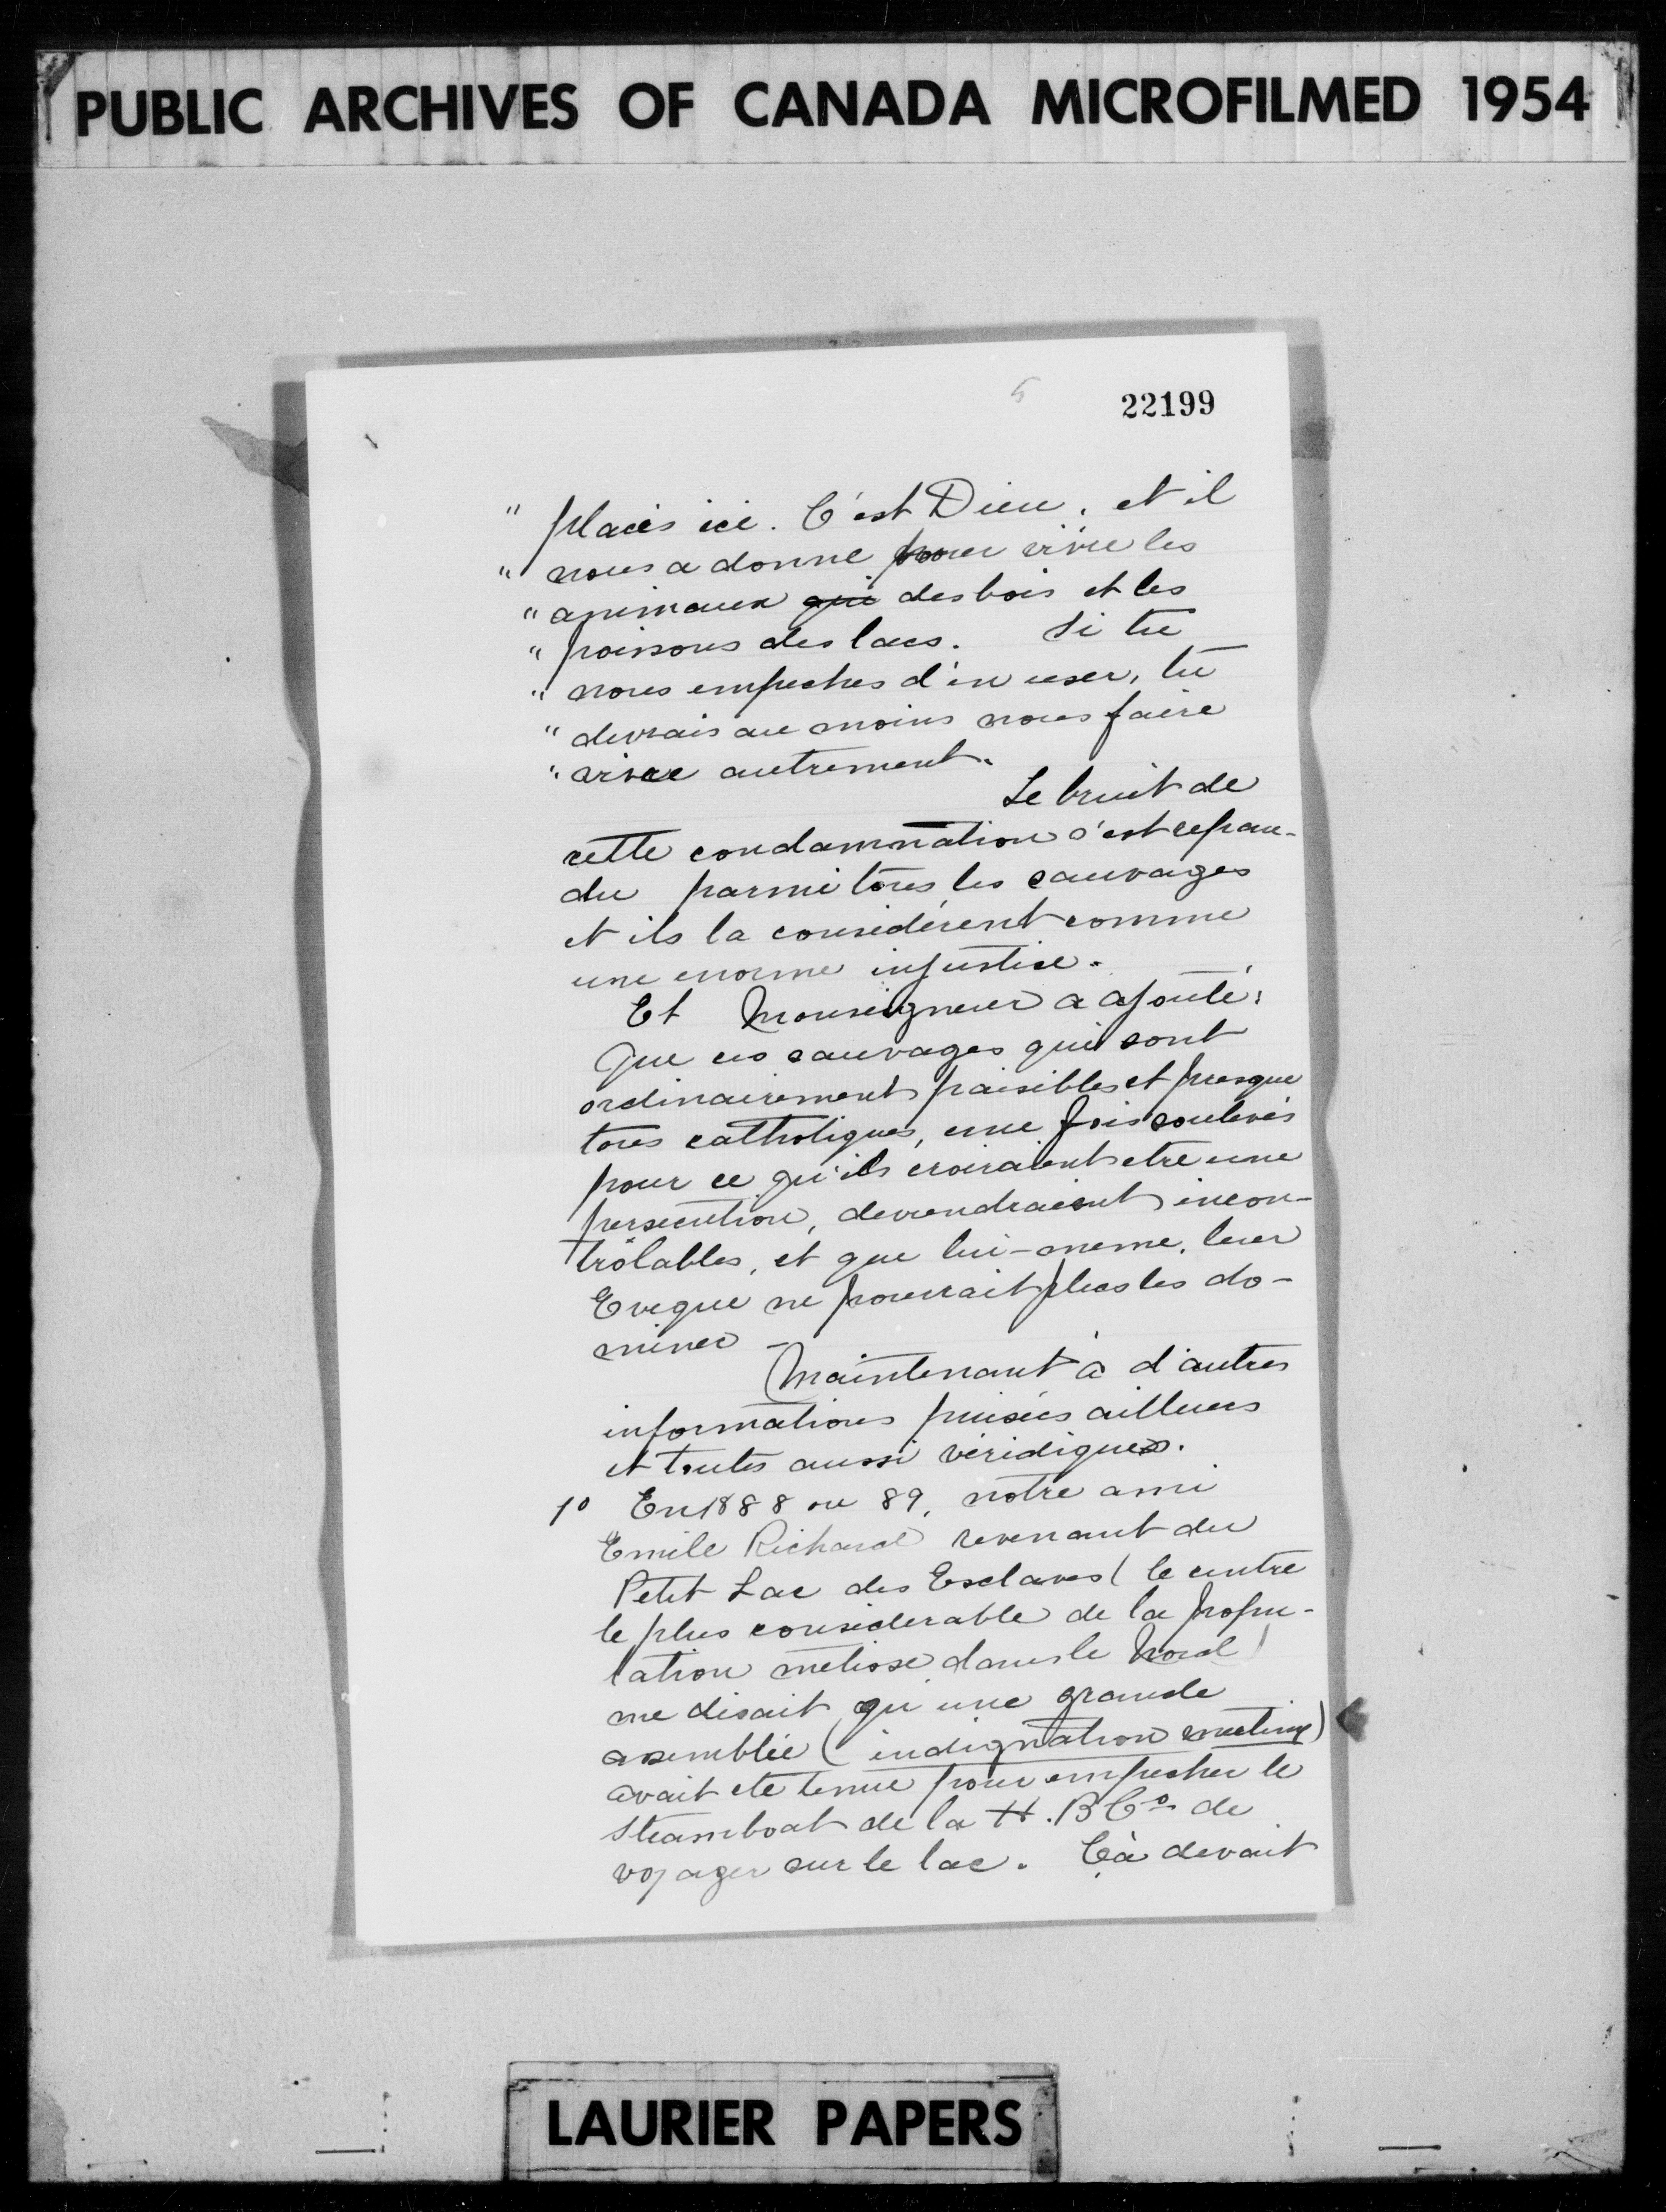 PUBLIC ARCHIVES OF CANADA MICROFILMED 1954
5
22199
" placés ici. C'est Dieu, et il
" nous a donné pour vivre les
" animaux qui des bois et les
" poissons des lacs. Si tu
" nous empeches d'en user, tu
" devrais au moins nous faire
" vivre autrement.
Le bruit de
cette condamnation s'est repan-
du parmi tous les sauvages
et ils la considérent comme
une enorme injustice.
Et Monseigneur a ajouté:
Que ces sauvages qui sont
ordinairement paisibles et presque
tous catholiques, une fois soulevés
pour ce qu'ils croiraient etre une
persecution, deviendraient incon-
trôlables, et que lui-meme, leur
Eveque ne pourrait plus les do-
miner -
Maintenant à d'autres
informations puisées ailleurs
et toutes aussi véridiques.
1º En 1888 ou 89, notre ami
Emile Richard revenant du
Petit Lac des Esclaves ( le centre
le plus considerable de la popu-
lation métisse dans le Nord )
me disait qu'une grande
assemblée ( indignation meeting )
avait ete tenue pour empecher le
Steamboat de la H. B Cº de
voyager sur le lac. Çà devait
LAURIER PAPERS